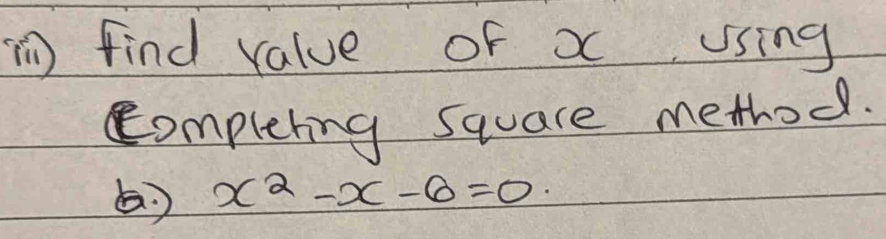 iii) find value of x using
Completing square method.
b.) x² - x - 6 = 0.